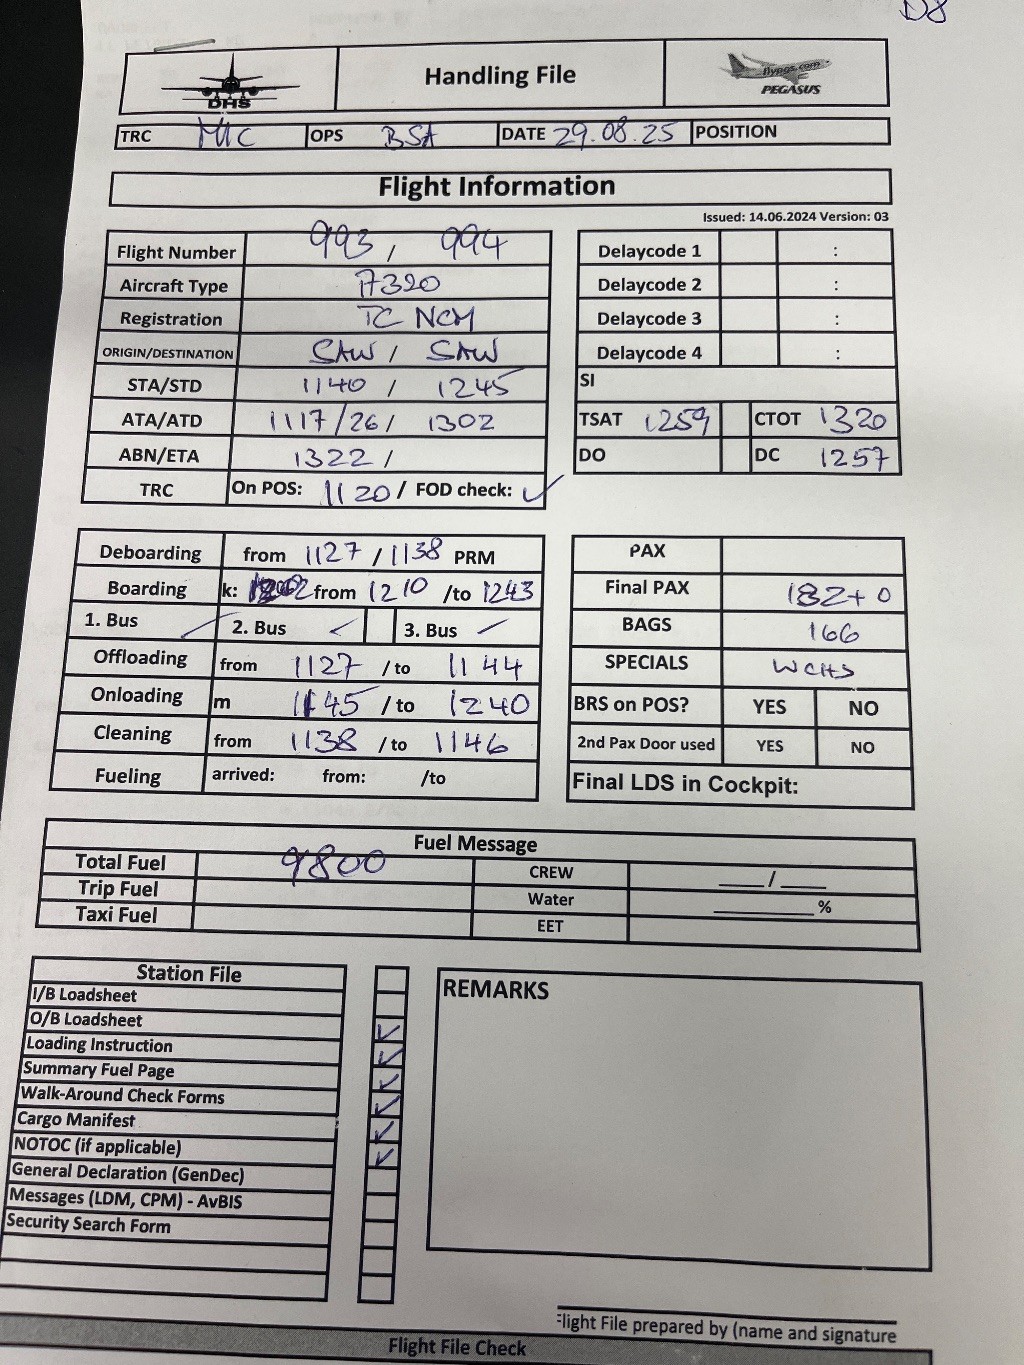 D8
DHS
Handling File
flypgs.com
PEGASUS
TRC MIC OPS BSA DATE 29.08.25 POSITION
Flight Information
Issued: 14.06.2024 Version: 03
Flight Number 993 / 994
Aircraft Type A320
Registration TC NCM
ORIGIN/DESTINATION SAW / SAW
STA/STD 1140 / 1245
ATA/ATD 1117/26 / 1302
ABN/ETA 1322 /
TRC On POS: 1120 / FOD check: ✓
Delaycode 1 :
Delaycode 2 :
Delaycode 3 :
Delaycode 4 :
SI
TSAT 1259 CTOT 1320
DO DC 1257
Deboarding from 1127 / 1138 PRM
Boarding k: from 1210 /to 1243
1. Bus ✓ 2. Bus ✓ 3. Bus ✓
Offloading from 1127 / to 1144
Onloading m 1145 / to 1240
Cleaning from 1138 / to 1146
Fueling arrived: from: /to
PAX
Final PAX 182+0
BAGS 166
SPECIALS WCHS
BRS on POS? YES NO
2nd Pax Door used YES NO
Final LDS in Cockpit:
Fuel Message
Total Fuel 9800 CREW ____/____
Trip Fuel Water ________%
Taxi Fuel EET
Station File
I/B Loadsheet
O/B Loadsheet ✓
Loading Instruction ✓
Summary Fuel Page ✓
Walk-Around Check Forms ✓
Cargo Manifest ✓
NOTOC (if applicable) ✓
General Declaration (GenDec)
Messages (LDM, CPM) - AvBIS
Security Search Form
REMARKS
Flight File prepared by (name and signature
Flight File Check